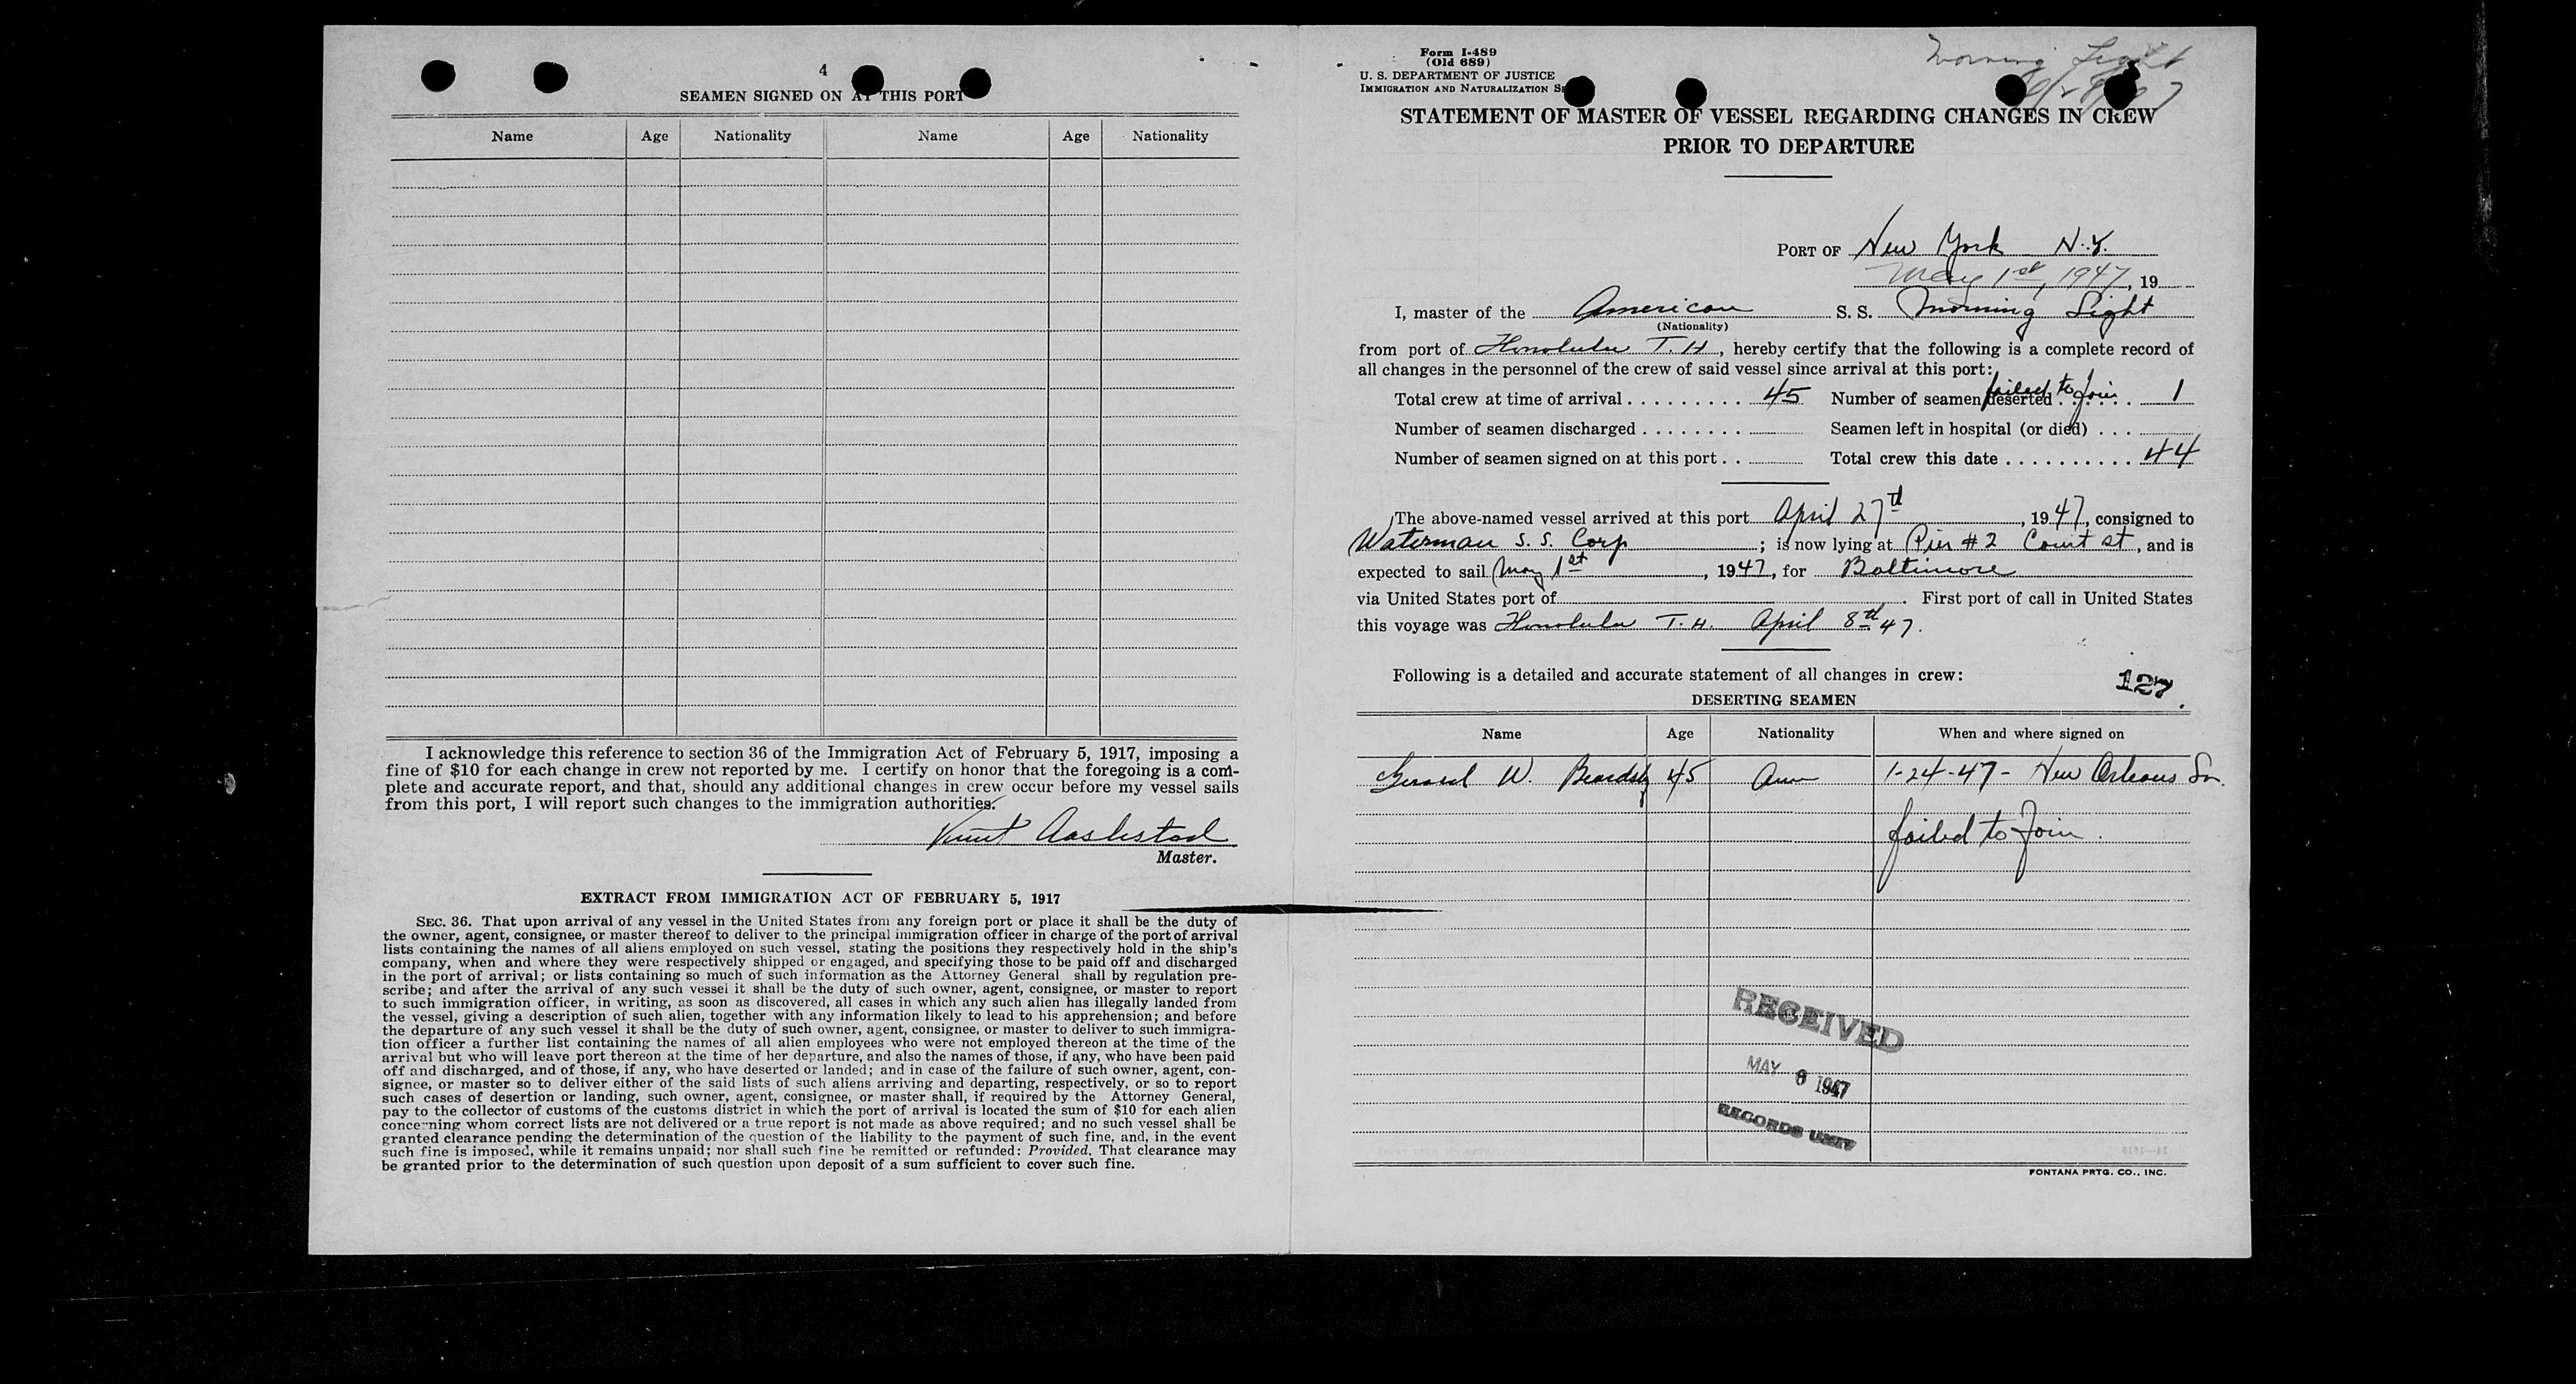 4
SEAMEN SIGNED ON AT THIS PORT
Name Age Nationality Name Age Nationality
I acknowledge this reference to section 36 of the Immigration Act of February 5, 1917, imposing a
fine of $10 for each change in crew not reported by me. I certify on honor that the foregoing is a com-
plete and accurate report, and that, should any additional changes in crew occur before my vessel sails
from this port, I will report such changes to the immigration authorities.
Knut Aaslestad
Master.
EXTRACT FROM IMMIGRATION ACT OF FEBRUARY 5, 1917
SEC. 36. That upon arrival of any vessel in the United States from any foreign port or place it shall be the duty of
the owner, agent, consignee, or master thereof to deliver to the principal immigration officer in charge of the port of arrival
lists containing the names of all aliens employed on such vessel, stating the positions they respectively hold in the ship's
company, when and where they were respectively shipped or engaged, and specifying those to be paid off and discharged
in the port of arrival; or lists containing so much of such information as the Attorney General shall by regulation pre-
scribe; and after the arrival of any such vessel it shall be the duty of such owner, agent, consignee, or master to report
to such immigration officer, in writing, as soon as discovered, all cases in which any such alien has illegally landed from
the vessel, giving a description of such alien, together with any information likely to lead to his apprehension; and before
the departure of any such vessel it shall be the duty of such owner, agent, consignee, or master to deliver to such immigra-
tion officer a further list containing the names of all alien employees who were not employed thereon at the time of the
arrival but who will leave port thereon at the time of her departure, and also the names of those, if any, who have been paid
off and discharged, and of those, if any, who have deserted or landed; and in case of the failure of such owner, agent, con-
signee, or master so to deliver either of the said lists of such aliens arriving and departing, respectively, or so to report
such cases of desertion or landing, such owner, agent, consignee, or master shall, if required by the Attorney General,
pay to the collector of customs of the customs district in which the port of arrival is located the sum of $10 for each alien
concerning whom correct lists are not delivered or a true report is not made as above required; and no such vessel shall be
granted clearance pending the determination of the question of the liability to the payment of such fine, and, in the event
such fine is imposed, while it remains unpaid; nor shall such fine be remitted or refunded: Provided, That clearance may
be granted prior to the determination of such question upon deposit of a sum sufficient to cover such fine.
Form I-489
(Old 689)
U. S. DEPARTMENT OF JUSTICE
IMMIGRATION AND NATURALIZATION
Morning Light
STATEMENT OF MASTER OF VESSEL REGARDING CHANGES IN CREW
PRIOR TO DEPARTURE
PORT OF New York N.Y.
May 1st, 1947, 19
I, master of the American S. S. Morning Light
(Nationality)
from port of Honolulu T.H, hereby certify that the following is a complete record of
all changes in the personnel of the crew of said vessel since arrival at this port:
failed to join
Total crew at time of arrival 45 Number of seamen deserted 1
Number of seamen discharged Seamen left in hospital (or died)
Number of seamen signed on at this port Total crew this date 44
The above-named vessel arrived at this port April 27th, 1947, consigned to
Waterman S. S. Corp; is now lying at Pier #2 Court St, and is
expected to sail May 1st, 1947, for Baltimore
via United States port of. First port of call in United States
this voyage was Honolulu T.H. April 8th 47.
Following is a detailed and accurate statement of all changes in crew:
127
DESERTING SEAMEN
Name Age Nationality When and where signed on
Gerard W. Beardsly 45 Am 1-24-47- New Orleans
failed to join.
RECEIVED
MAY 8 1947
RECORDS UNIT
FONTANA PRTG. CO., INC.